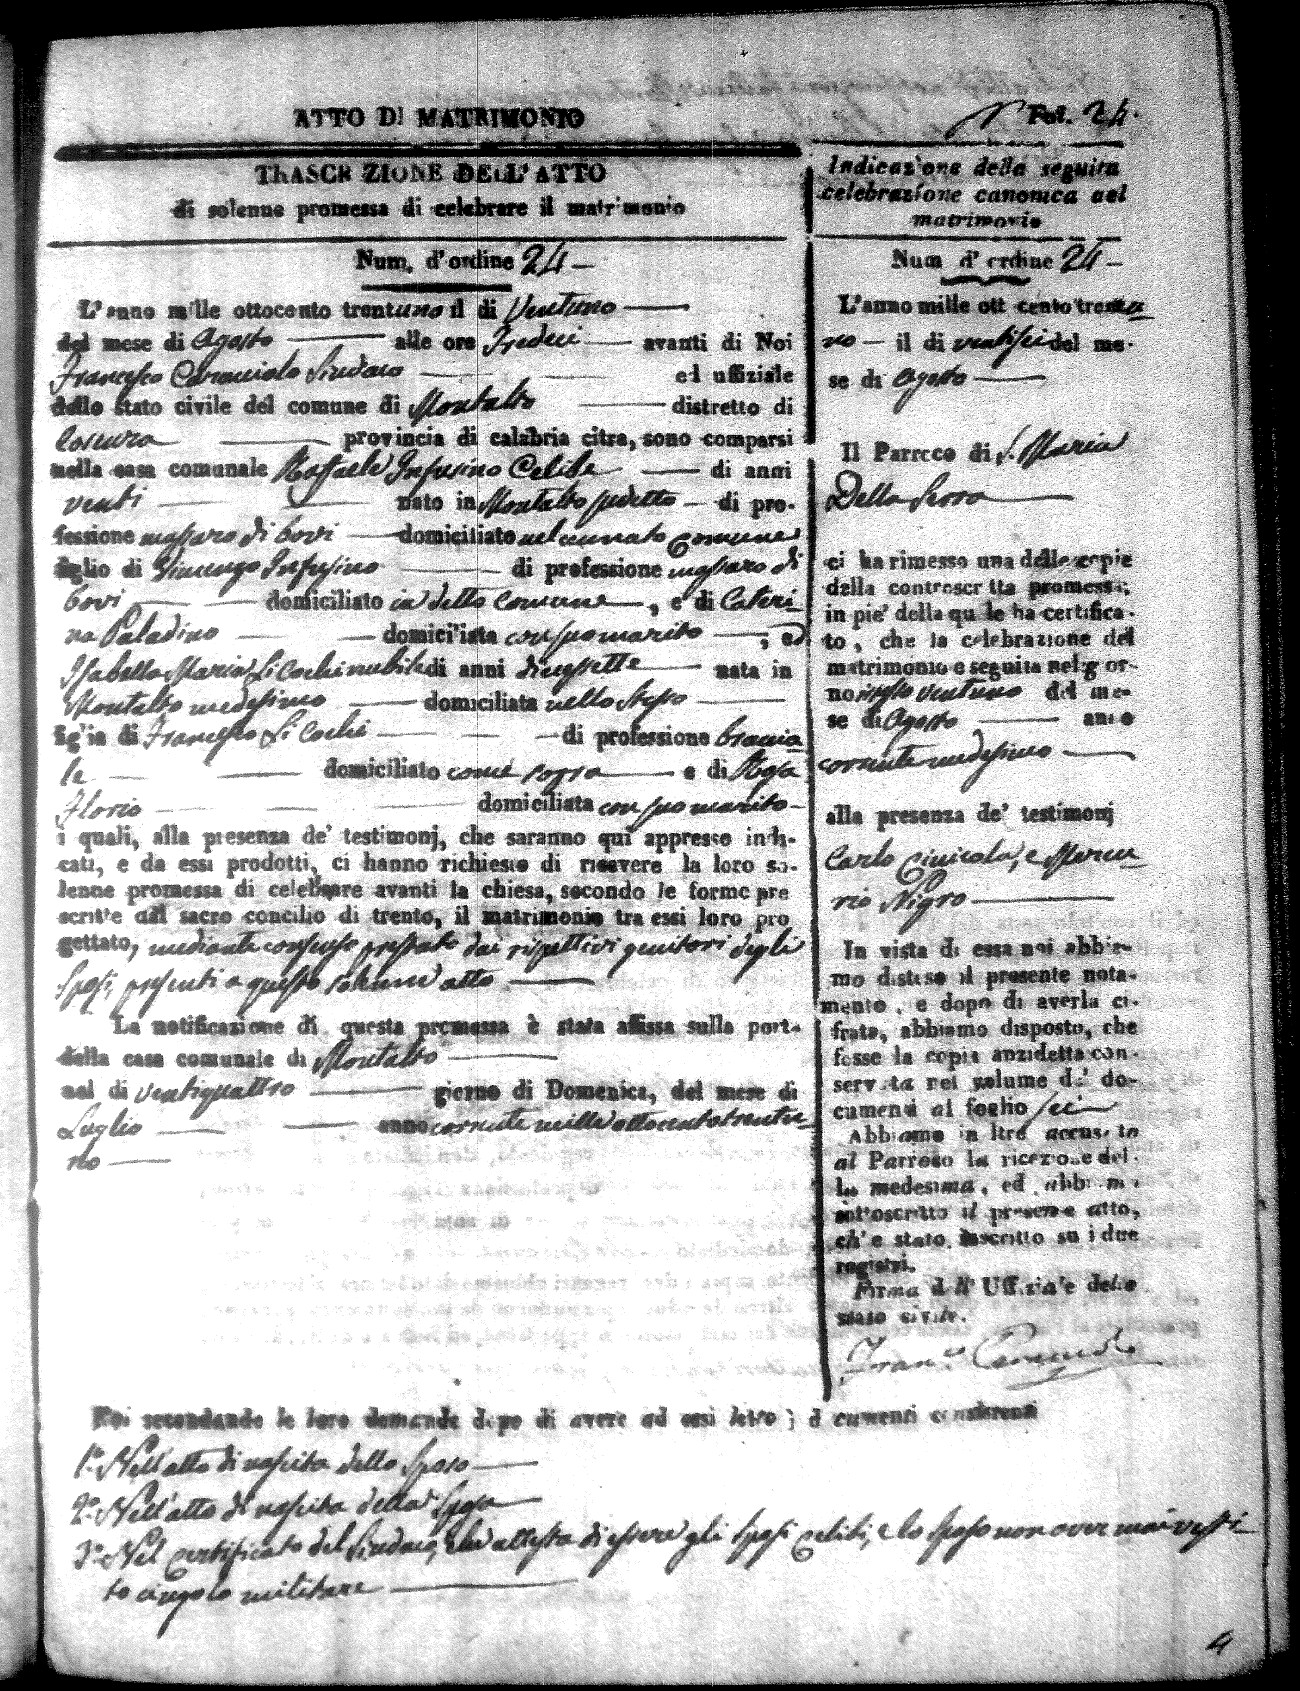 ATTO DI MATRIMONIO
Fol. 24.
TRASCRIZIONE DELL'ATTO
di solenne promessa di celebrare il matrimonio
Num. d'ordine 24 —
L'anno mille ottocento trentuno il di Ventuno —
del mese di Agosto — alle ore Tredeci — avanti di Noi
Francesco Caracciolo Sindaco — ed uffiziale
dello stato civile del comune di Montalto — distretto di
Cosenza — provincia di calabria citra, sono comparsi
nella casa comunale Raffaele Infusino Celibe — di anni
venti — nato in Montalto predetto — di pro-
fessione massaro di bovi — domiciliato nel cennato Comune
figlio di Vincenzo Infusino — di professione massaro di
bovi — domiciliato in detto Comune —, e di Cateri
na Paladino — domiciliata con suo marito —, ed
Isabella Maria Li Cochi nubile di anni diecissette — nata in
Montalto medesimo — domiciliata nello stesso —
figlia di Francesco Li Cochi — di professione braccia
le — domiciliato come sopra — e di Rosa
Florio — domiciliata con suo marito —
i quali, alla presenza de' testimonj, che saranno qui appresso indi-
cati, e da essi prodotti, ci hanno richiesto di ricevere la loro so-
lenne promessa di celebrare avanti la chiesa, secondo le forme pre
scritte dal sacro concilio di trento, il matrimonio tra essi loro pro
gettato, mediante consenso prestato dai rispettivi genitori degli
Sposi, presenti a questo solenne atto —
La notificazione di questa promessa è stata affissa sulla porta
della casa comunale di Montalto —
nel di ventiquattro — giorno di Domenica, del mese di
Luglio — anno corrente mille ottocento trentu
no —
Indicazione della seguita
celebrazione canonica del
matrimonio
Num d' ordine 24 —
L'anno mille ott cento trentu
no — il di ventisei del me-
se di Agosto —
Il Parroco di S. Maria
Della Serra —
ci ha rimesso una delle copie
della controscritta promessa;
in pie' della quale ha certifica-
to, che la celebrazione del
matrimonio e seguita nel gior-
no ventuno del me-
se di Agosto — anno
corrente medesimo —
alla presenza de' testimonj
Carlo Cinicola, e Mercu
rio Nigro —
In vista di essa noi abbia-
mo disteso il presente nota-
mento, e dopo di averla ci-
frata, abbiamo disposto, che
fosse la copia anzidetta con-
servata nel volume de' do-
cumenti al foglio sei —
Abbiamo inoltre accusato
al Parroco la ricezione del-
la medesima, ed abbiamo
sottoscritto il presente atto,
ch'e stato inscritto su i due
registri.
Firma dell' Uffiziale dello
stato civile.
Noi secondando le loro demande dopo di avere ad essi letto i documenti consistenti
1º Nell'atto di nascita dello Sposo —
2º Nell'atto di nascita della Sposa —
3º Nel Certificato del Sindaco, che attesta di essere gli sposi celibi, e lo sposo non aver mai vesti
to cingolo militare —
4